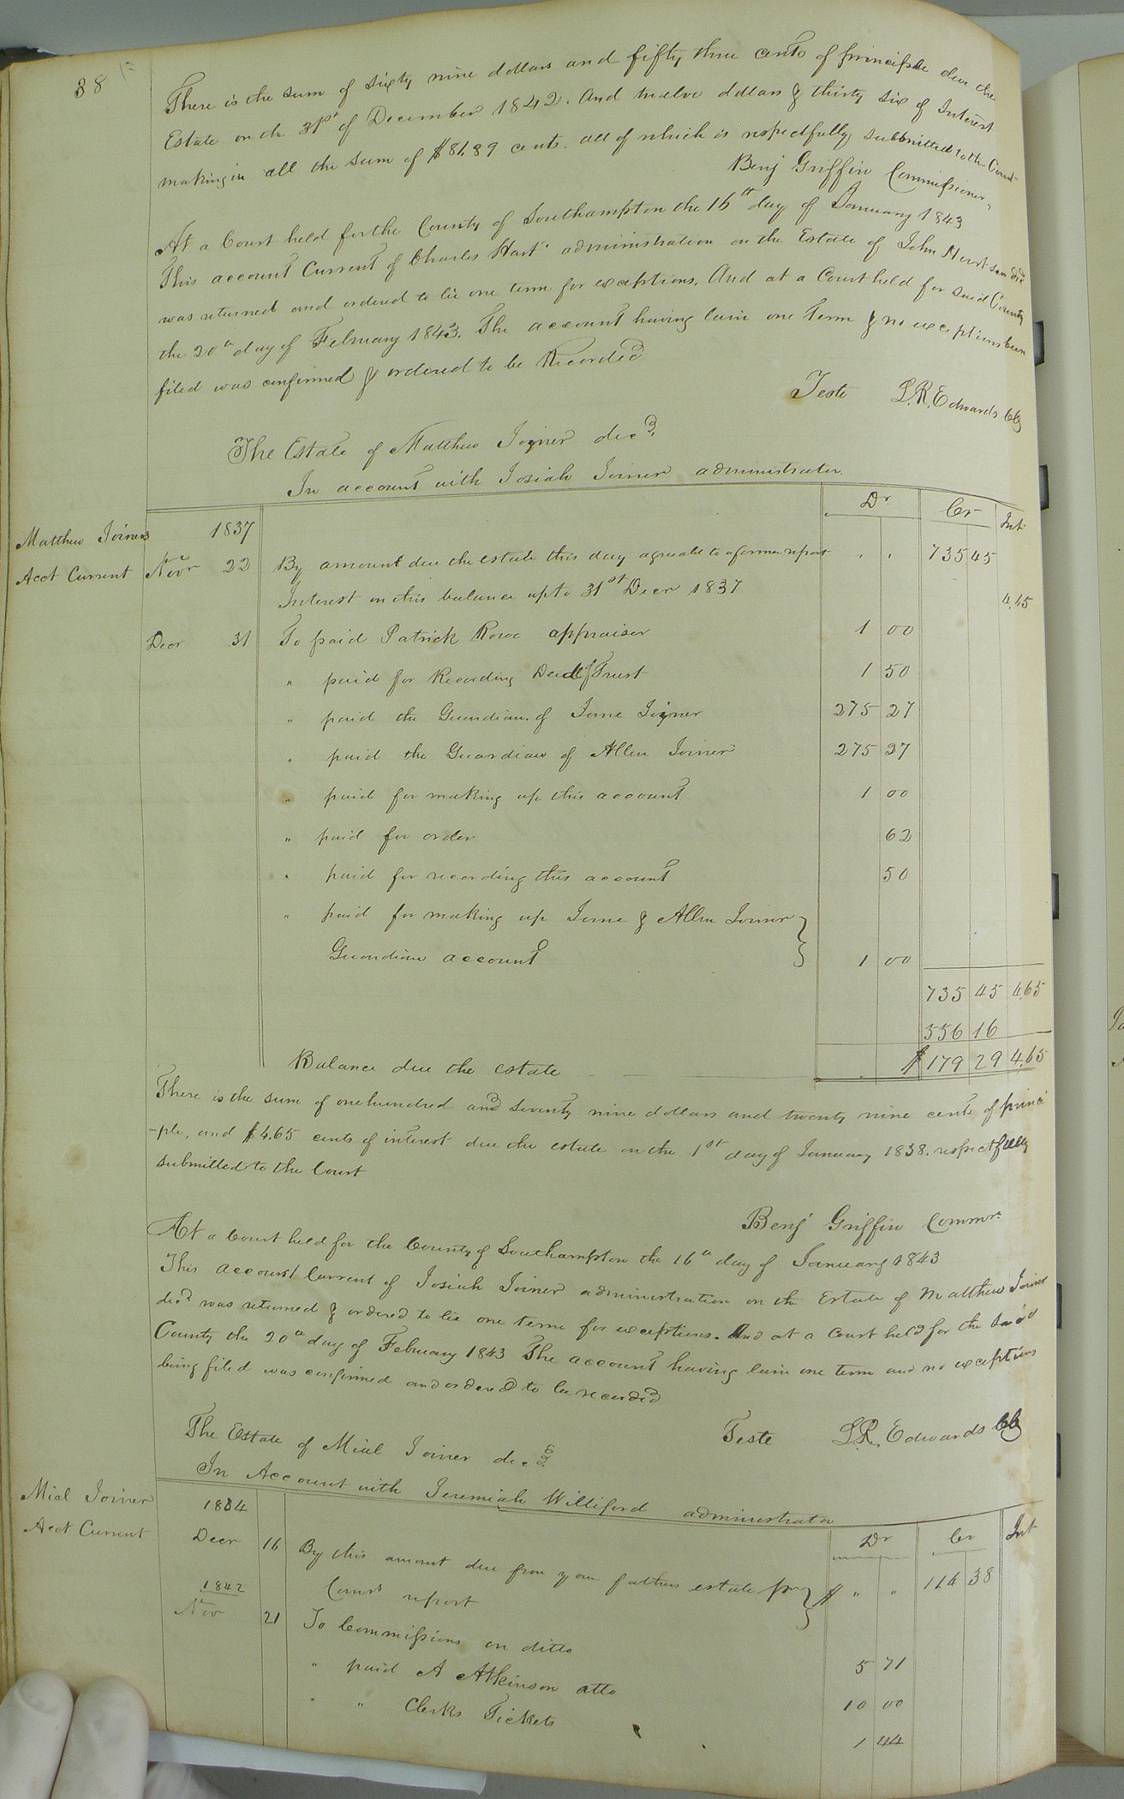 38
There is the sum of sixty nine dollars and fifty three cents of principle due the
Estate on the 31st of December 1842. And twelve dollars & thirty six of Interest
making in all the sum of $81.89 cents. all of which is respectfully submitted to the Court
Benj Griffin Commissioner
At a Court held for the County of Southampton the 16th day of January 1843
This account Current of Charles Hart administration on the Estate of John
was returned and ordered to lie one term for exceptions. And at a Court held for said County
the 20th day of February 1843. The account having lain one Term & no exceptions been
filed was confirmed & ordered to be Recorded
Teste L. R. Edwards Clk
The Estate of Matthew Joyner decd.
In account with Josiah Joiner administrator
Dr Cr Int
Matthew Joiners 1837
Acct Current Novr 22 By amount due the estate this day agreeable to a former report " " 735 45
Interest on this balance up to 31st Decr 1837 4.65
Decr 31 To paid Patrick Rowe appraiser 1 00
" paid for Recording Deed of Trust 1 50
" paid the Guardian of Jorne Joyner 275 27
" paid the Guardian of Allen Joiner 275 27
" paid for making up this account 1 00
" paid for order 62
" paid for recording this account 50
" paid for making up Jorne & Allen Joiner
Guardian account 1 00
735 45 4.65
556 16
Balance due the estate $ 179 29 4.65
There is the sum of one hundred and seventy nine dollars and twenty nine cents of princi
-ple, and $4.65 cents of interest due the estate on the 1st day of January 1838. respectfully
submitted to the Court
Benj Griffin Commr.
At a Court held for the County of Southampton the 16th day of January 1843
This account Current of Josiah Joiner administration on the Estate of Matthew Joiner
decd was returned & ordered to lie one term for exceptions. And at a Court held for the said
County the 20th day of February 1843 The account having lain one term and no exceptions
being filed was confirmed and ordered to be recorded
Teste L. R. Edwards Clk
The Estate of Mial Joiner decd.
In Account with Jeremiah Williford administrator
Dr Cr Int
Mial Joiner 1834
Acct Current Decr 16 By this amount due from your fathers estate pr $ " " 114 38
Comrs report
1842
Nov 21 To Commissions on ditto 5 71
" paid A Atkinson atto 10 00
" " Clerks Tickets 1 44